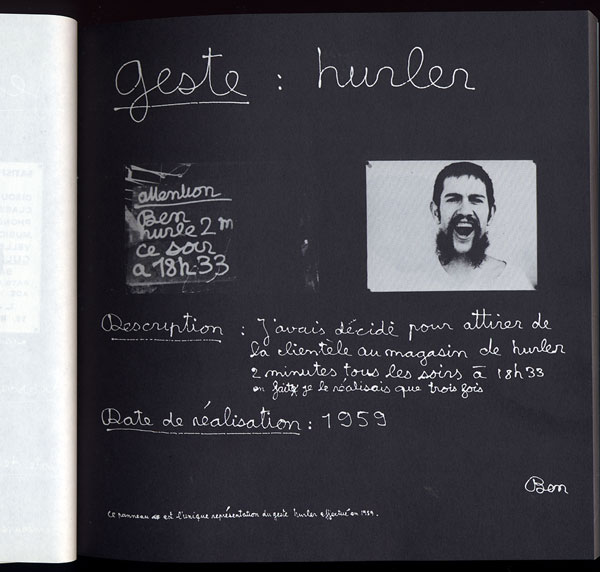 geste : hurler
attention
Ben
hurle 2 m
ce soir
a 18h.33
Description : J'avais décidé pour attirer de
la clientèle au magasin de hurler
2 minutes tous les soirs à 18h33
en faite je le réalisais que trois fois
Date de réalisation : 1959
Ben
Ce panneau est l'unique représentation du geste hurler effectué en 1959.